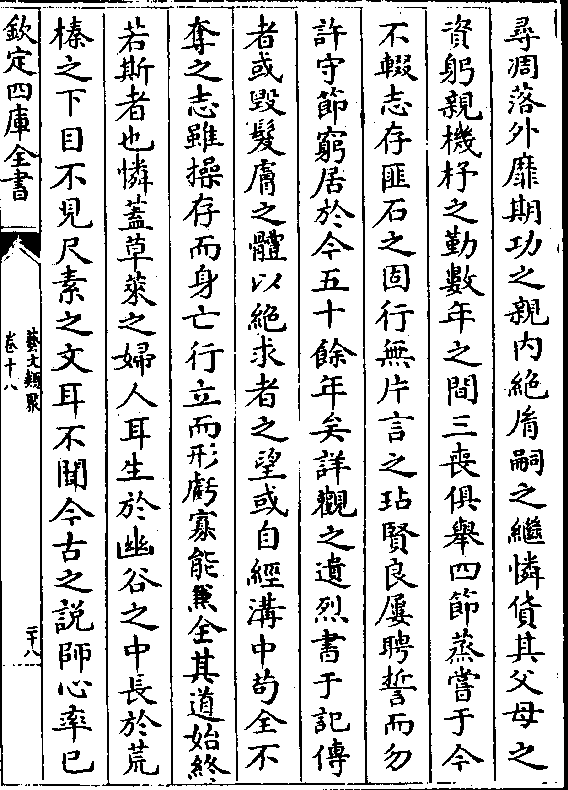 尋凋落外靡期功之親内絶胤嗣之繼憐貨其父母之
資躬親機杼之勤數年之間三喪俱舉四節蒸嘗于今
不輟志存匪石之固行無片言之玷賢良屢聘誓而勿
許守節窮居於今五十餘年矣詳觀之遺烈書于記傳
者或毀髮膚之體以絶求者之望或自經溝中茍全不
奪之志雖操存而身亡行立而形虧寡能兼全其道始終
若斯者也憐蓋草萊之婦人耳生於幽谷之中長於荒
榛之下目不見尺素之文耳不聞今古之説師心率已
欽定四庫全書
藝文類聚
卷十八
二十八